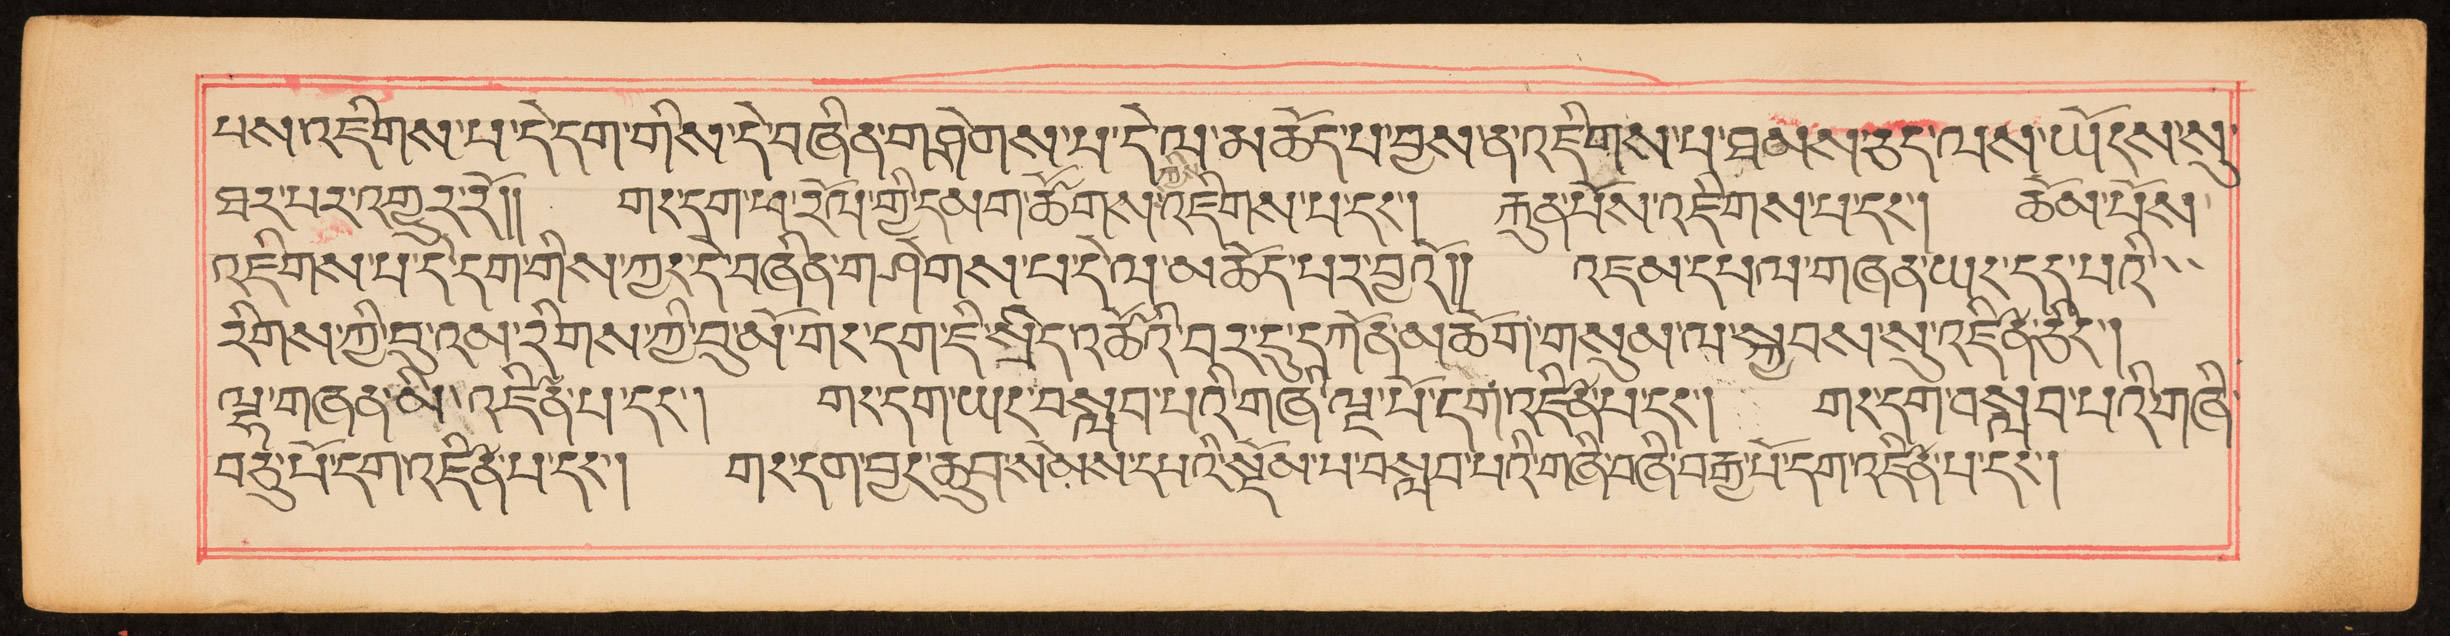 པས་འཇིགས་པ་དེ་དག་གིས་དེ་བཞིན་གཤེགས་པ་དེ་ལ་མཆོད་པ་བྱས་ན་འཇིགས་པ་ཐམས་ཅད་ལས་ཡོངས་སུ་
ཐར་པར་འགྱུར་རོ།། གང་དག་ཕ་རོལ་གྱི་དམག་ཚོགས་ཀྱིས་འཇིགས་པ་དང་། རྐུན་པོས་འཇིགས་པ་དང་། ཆོམ་པོས་
འཇིགས་པ་དེ་དག་གིས་ཀྱང་དེ་བཞིན་གཤེགས་པ་དེ་ལ་མཆོད་པར་བྱའོ།། འཇམ་དཔལ་གཞན་ཡང་དད་པའི་
རིགས་ཀྱི་བུ་འམ་རིགས་ཀྱི་བུ་མོ་གང་དག་ཇི་སྲིད་འཚོའི་བར་དུ་དཀོན་མཆོག་གསུམ་ལ་སྐྱབས་སུ་འཛིན་ཅིང་།
ལྷ་གཞན་མི་འཛིན་པ་དང་། གང་དག་ཡང་བསླབ་པའི་གཞི་ལྔ་པོ་དག་འཛིན་པ་དང་། གང་དག་བསླབ་པའི་གཞི་
བཅུ་པོ་དག་འཛིན་པ་དང་། གང་དག་བྱང་ཆུབ་སེམས་དཔའི་སྡོམ་པ་བསླབ་པའི་གཞི་བཞི་བརྒྱ་པོ་དག་འཛིན་པ་དང་།